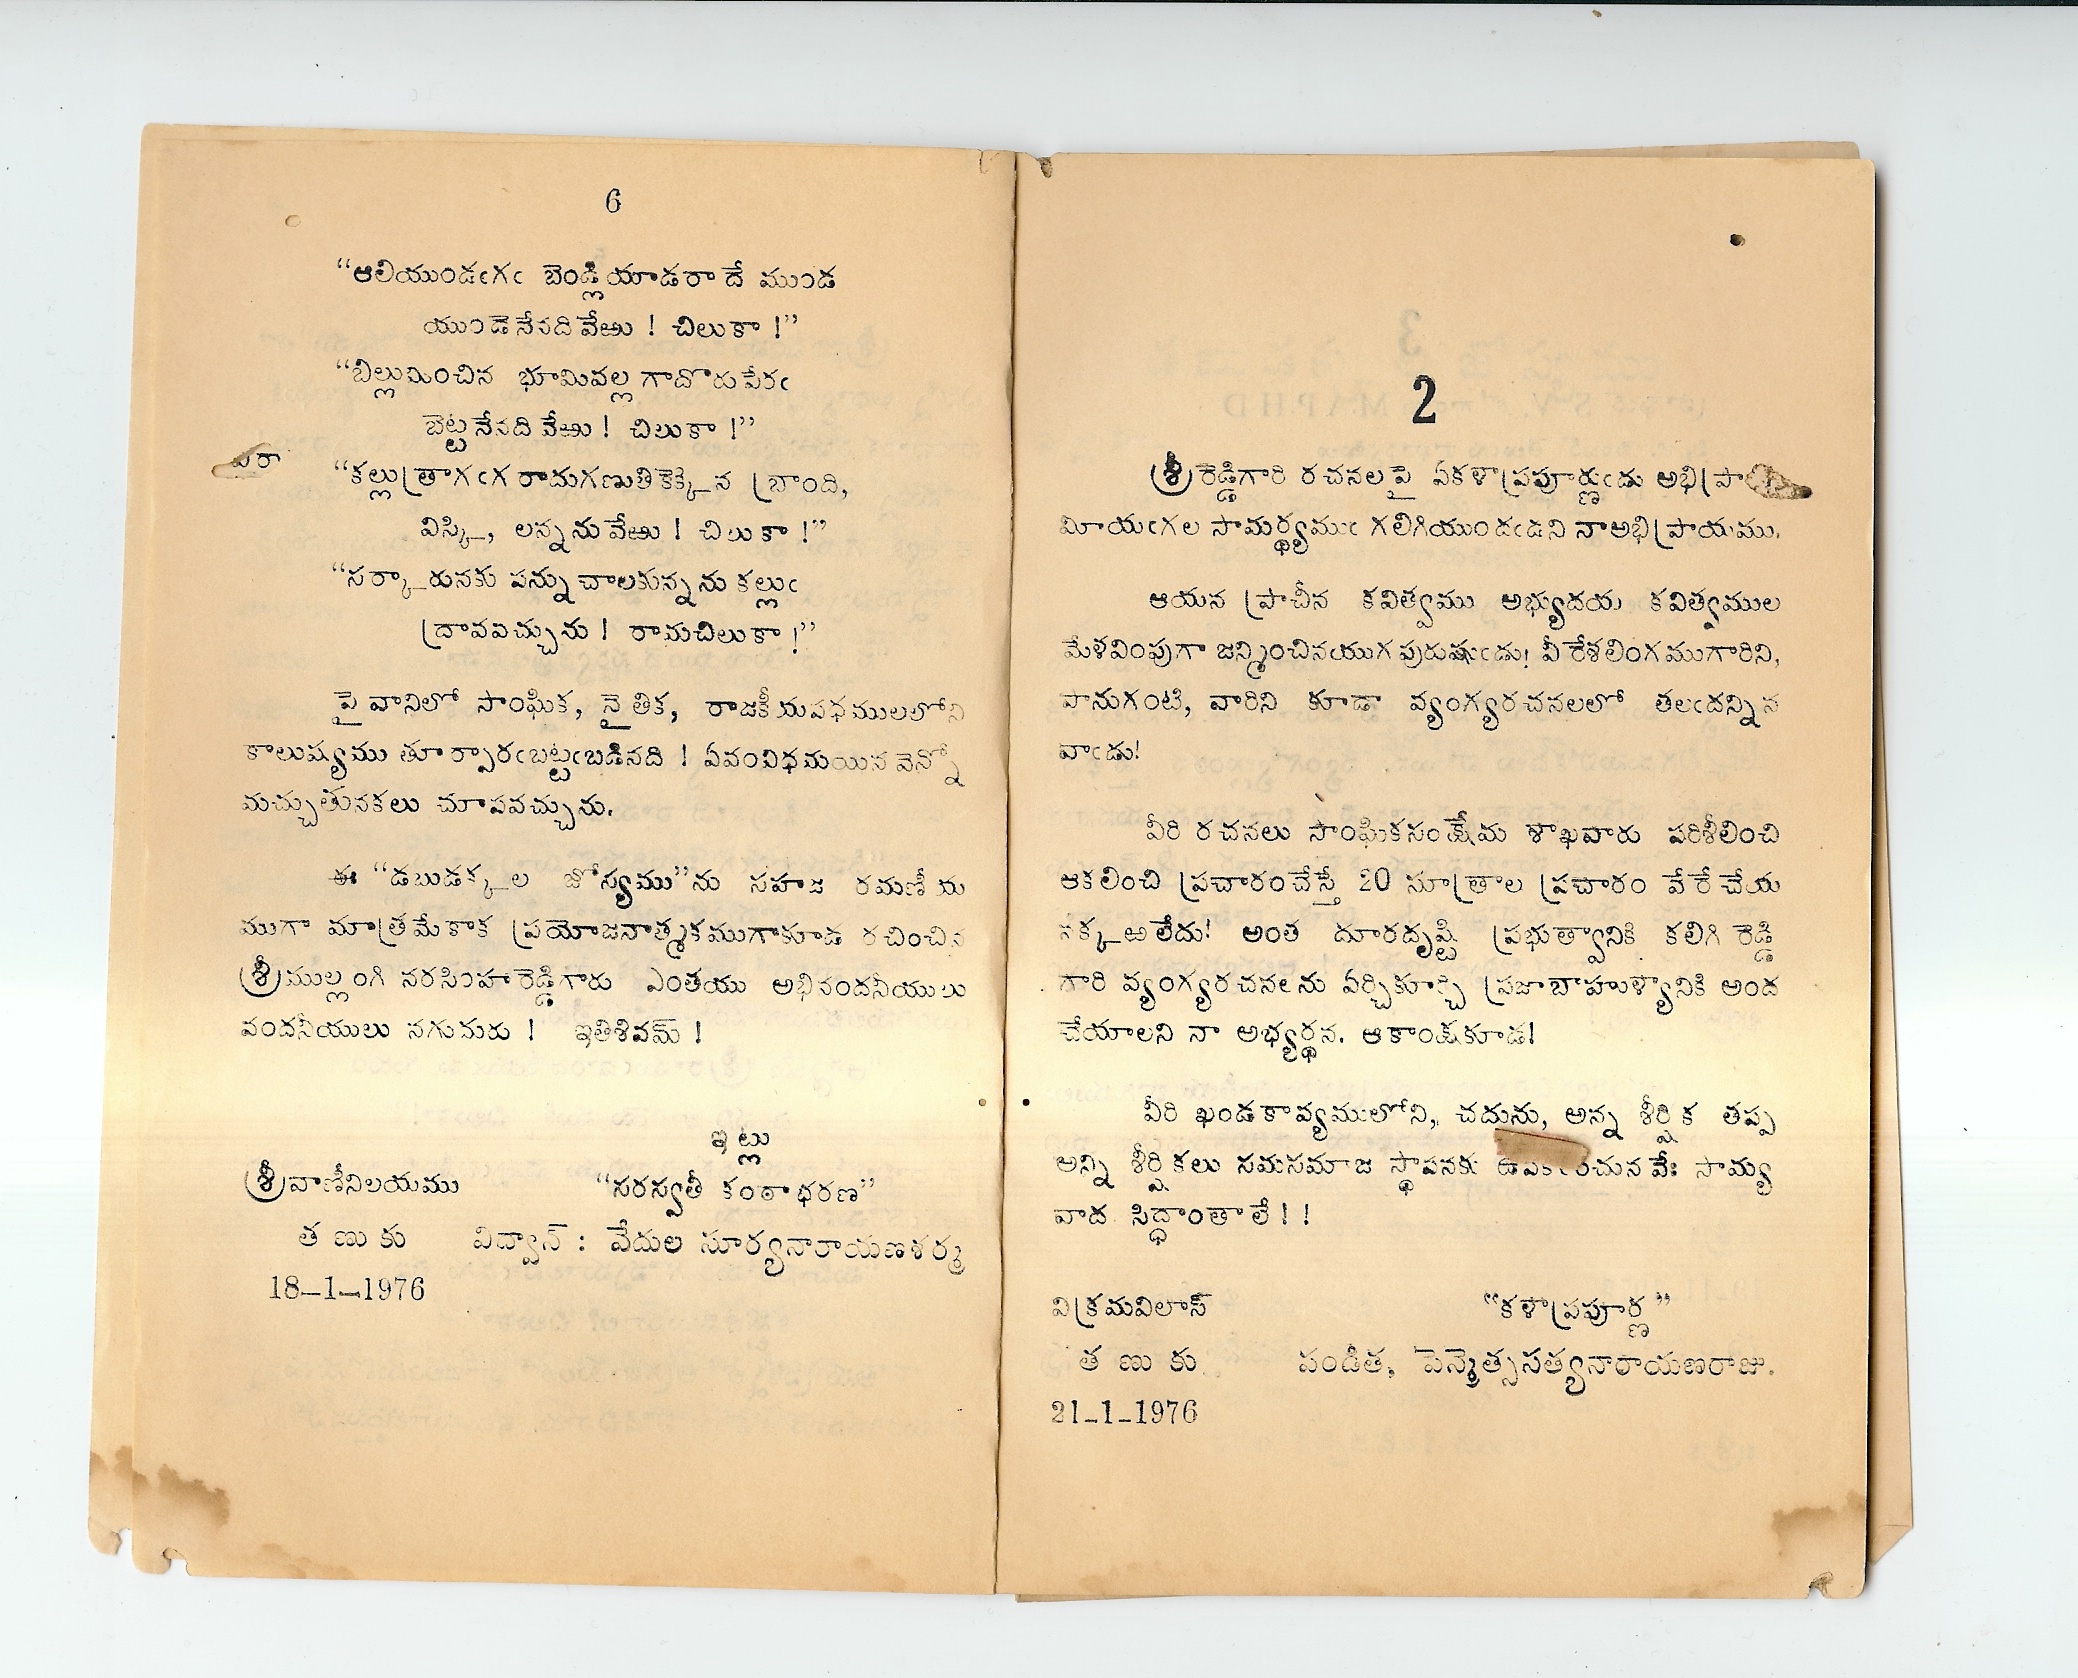 6
“ఆలియుండఁగఁ బెండ్లియాడరాదే ముండ
యుండెనేనది వేఱు ! చిలుకా !”
“బిల్లుమించిన భూమివల్ల గాదొరుపేరఁ
బెట్టనేనది వేఱు ! చిలుకా !”
“కల్లుత్రాగఁగరాదుగణుతికెక్కిన బ్రాంది,
విస్కి, లన్నను వేఱు ! చిలుకా !”
“సర్కారునకు పన్ను చాలకున్నను కల్లుఁ
ద్రావవచ్చును ! రామచిలుకా !”
పై వానిలో సాంఘిక, నైతిక, రాజకీయపథములలోని
కాలుష్యము తూర్పారఁబట్టఁబడినది ! ఏవంవిధమయిన వెన్నో
మచ్చుతునకలు చూపవచ్చును.
ఈ “డబుడక్కల జోస్యము”ను సహజ రమణీయ
ముగా మాత్రమేకాక ప్రయోజనాత్మకముగాకూడ రచించిన
శ్రీముల్లంగి నరసింహారెడ్డిగారు ఎంతయు అభినందనీయులు
వందనీయులు నగుదురు ! ఇతిశివమ్ !
ఇట్లు
శ్రీవాణీనిలయము “సరస్వతీ కంఠాభరణ”
తణుకు విద్వాన్ : వేదుల సూర్యనారాయణశర్మ
18-1-1976
2
శ్రీరెడ్డిగారి రచనలపై ఏకళాప్రపూర్ణుఁడు
మీయఁగల సామర్థ్యముఁ గలిగియుండఁడని నాఅభిప్రాయము.
ఆయన ప్రాచీన కవిత్వము అభ్యుదయ కవిత్వముల
మేళవింపుగా జన్మించినయుగపురుషుఁడు! వీరేశలింగముగారిని,
పానుగంటి, వారిని కూడా వ్యంగ్యరచనలలో తలఁదన్నిన
వాఁడు!
వీరి రచనలు సాంఘికసంక్షేమ శాఖవారు పరిశీలించి
ఆకలించి ప్రచారంచేస్తే 20 సూత్రాల ప్రచారం వేరే చేయ
నక్కఱలేదు! అంత దూరదృష్టి ప్రభుత్వానికి కలిగి రెడ్డి
గారి వ్యంగ్యరచనలను ఏర్చికూర్చి ప్రజాబాహుళ్యానికి అంద
చేయాలని నా అభ్యర్థన. ఆకాంక్షకూడ!
వీరి ఖండకావ్యములోని, చదును, అన్న శీర్షిక తప్ప
అన్ని శీర్షికలు సమసమాజ స్థాపనకు ఉపకరించునవేః సామ్య
వాద సిద్ధాంతాలే!!
విక్రమవిలాస్ “కళాప్రపూర్ణ”
తణుకు పండిత, పెన్మెత్ససత్యనారాయణరాజు.
21-1-1976